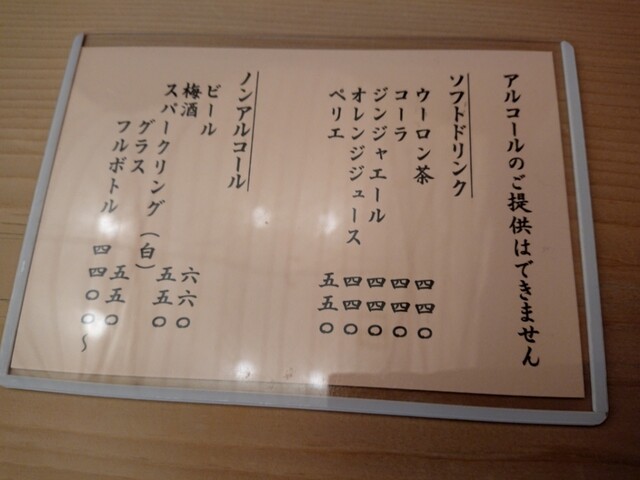 アルコールのご提供はできません
ソフトドリンク
ウーロン茶 四四〇
コーラ 四四〇
ジンジャエール 四四〇
オレンジジュース 四四〇
ペリエ 五五〇
ノンアルコール
ビール 六六〇
梅酒 五五〇
スパークリング（白）
グラス 五五〇
フルボトル 四四〇〇〜